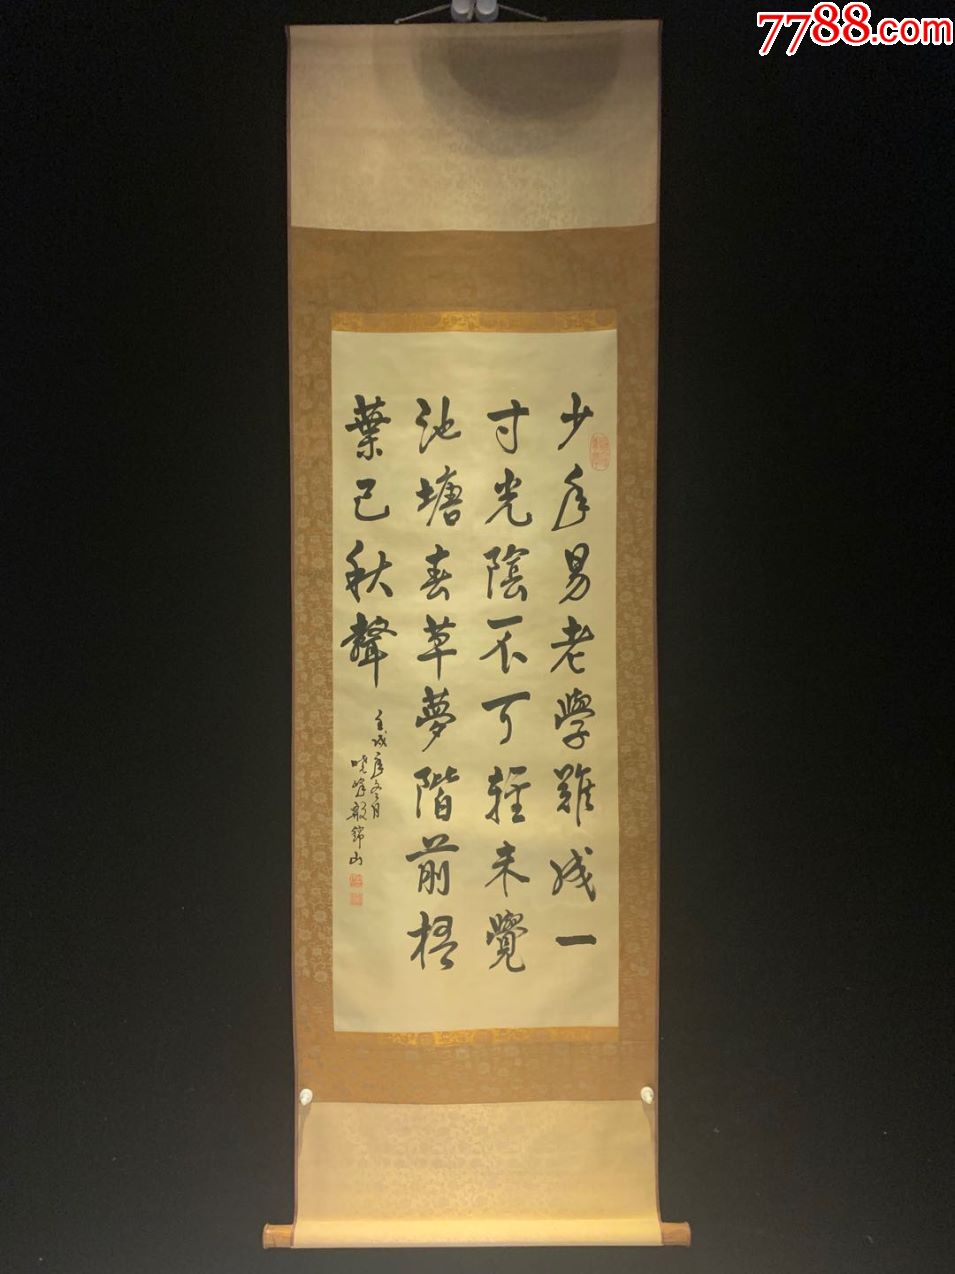 7788.com
少年易老學難成一
寸光陰不可輕未覺
池塘春草夢階前梧
葉已秋聲
壬戌年冬月
曉峰殷錦山